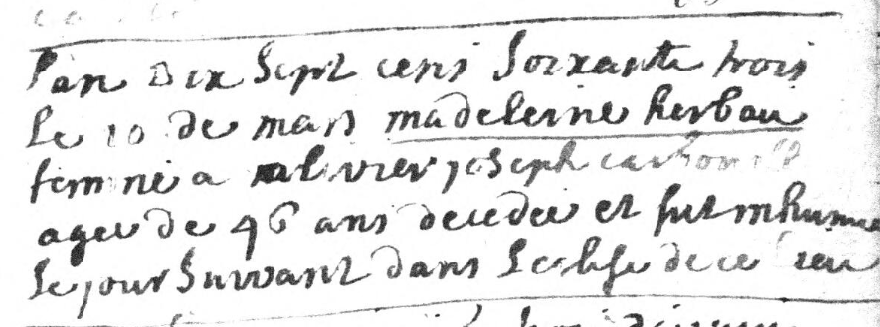 L'an Dix Sept cens Soixante trois
Le 10 de mars madeleine herbau
femme a olivier joseph
agee de 46 ans decedee et fut inhumee
le jour Suivant dans Leglise de ce lieu